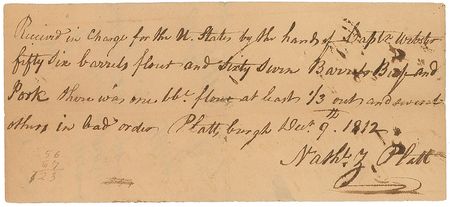 Received in Charge for the U. States by the hands of Capt. Webster
fifty six barrels flour and Sixty Seven Barrels Beef and
Pork there was one bbl. flour at least 1/3 out and several
others in bad order Plattsburgh Decr. 9th. 1812
Nathl. Z Platt
56
67
123